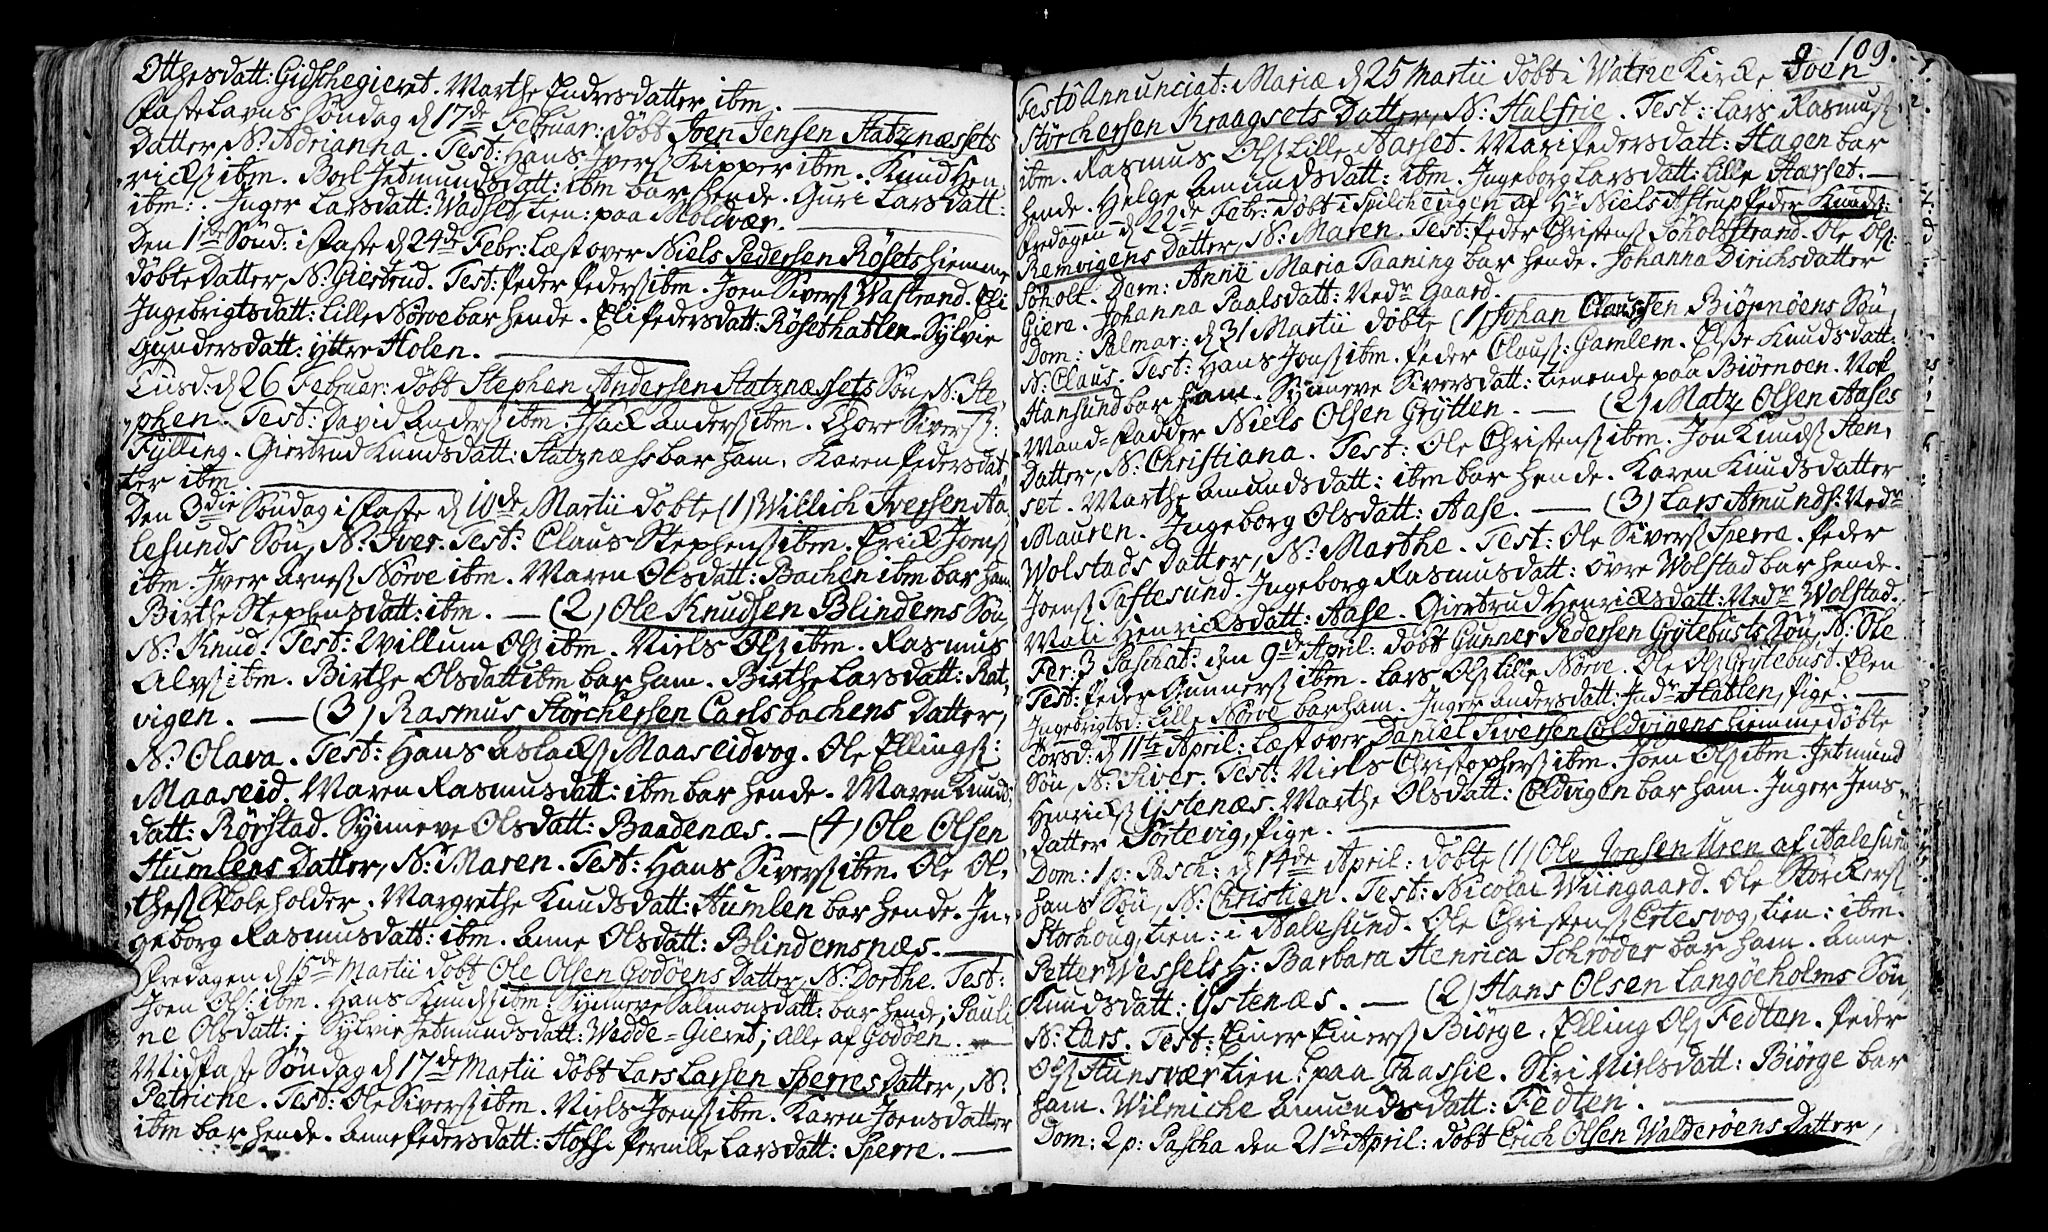 Ottesdatt: Gidschegieret. Marthe Endresdatter ibm.
Fastelavns Søndag d 17de Februar: døbt Joen Jensen Statznæssets
Datter, N: Adrianna. Test: Hans Iverſ Kipper ibm. Knud Hen-
richſ ibm. Boel Jetmundsdatt: ibm bar hende. Guri Larsdatt:
ibm: Inger Larsdatt: Wadset, tien: paa Moldvær.
Den 1ste Sønd: i Faste d 24de Febr: Læst over Niels Pedersen Røsets hiemme
døbte Datter, N: Giertrud. Test: Peder Pederſ ibm. Joen Siverſ Wastrand. Eli
Ingebrigtsdatt: Lille Nørve bar hende. Eli Pedersdatt: Røsethatlen. Sylvie
Gundersdatt: ytter Holen.
Eusd: d 26 Februar: døbt Stephen Andersen Statznæssets Søn, N: Ste-
phen. Test: David Anderſ ibm. Isack Anderſ ibm. Thore Siverſ:
Fylling. Giertrud Knudsdatt: Statznæhs bar ham. Karen Pedersdat-
ter ibm.
Den 3die Søndag i Faste d 10de Martii døbte (1) Willich Iversen Aa-
lesunds Søn, N: Iver. Test: Claus Stephenſ ibm. Erick Joenſ
ibm. Iver Arneſ Nørve ibm. Maren Olsdatt: Bachen ibm bar ham.
Birthe Stephensdatt: ibm. (2) Ole Knudsen Blindems Søn,
N: Knud. Test: Willum Olſ ibm. Niels Olſ ibm. Rasmus
Alvſ ibm. Birthe Olsdatt ibm bar ham. Birthe Larsdatt: Rat-
vigen. (3) Rasmus Størchersen Carlsbachens Datter,
N: Olava. Test: Hans Aslackſ Maaseidvog. Ole Ellingſ:
Maaseid. Maren Rasmusdatt: ibm bar hende. Maren Knuds
datt: Rørstad. Synneve Olsdatt: Baadenæs. (4) Ole Olsen
Humlens Datter, N: Maren. Test: Hans Siverſ ibm. Ole Ol-
theſ Skoleholder. Margrethe Knudsdatt: Humlen bar hende. In-
geborg Rasmusdatt: ibm. Anne Olsdatt: Blindemsnæs.
Fredagen d 15de Martii døbt Ole Olsen Godøens Datter, N: Dorthe. Test:
Joen Olſ: ibm. Hans Knudſ ibm. Synneve Salmonsdatt: bar hende; Pauli-
ne Olsdatt:; Sylvie Jetmundsdatt: Wedde-Gieret; alle af Godøen.
Midfaste Søndag d 17de Martii døbt Lars Larsen Sperres Datter, N:
Petriche. Test: Ole Siverſ ibm. Niels Joenſ ibm. Karen Joensdatter
ibm bar hende. Anne Pedersdatt: Hoffi. Pernille Larsdatt: Sperre.
109.
Festo Annunciat: Mariæ d 25 Martii døbt i Watne Kircke Joen
Størchersen Kraagsets Datter, N: Halfrie. Test: Lars Rasmusſ
ibm. Rasmus Olſ Lille Aarset. Mari Pedersdatt: Hagen bar
hende. Helge Amundsdatt: ibm. Ingeborg Larsdatt: Lille Aarset.
Fredagen d 22de Febr: døbt i Spilchevigen af Hr Niels Astrup Peder Knudſ:
Remvigens Datter, N: Maren. Test: Peder Christenſ Søholtstrand. Ole Olſ:
Søholt. Dom: Anne Maria Taaning bar hende. Johanna Dirichsdatter
Giere. Johanna Paalsdatt: Nedr Gaard.
Dom: Palmar: d 31 Martii døbte (1) Johan Claussen Biørnøens Søn,
N: Claus. Test: Hans Jonſ ibm. Peder Clausſ: Gamlem. Else Knudsdatt:
Hansund bar ham. Synneve Siversdatt: tienende paa Biørnøen. Nok
Mand-Fadder Niels Olsen Grytten. (2) Matz Olsen Aases
Datter, N: Christiana. Test: Ole Christenſ ibm. Jon Knudſ Sten-
set. Marthe Amundsdatt: ibm bar hende. Karen Knudsdatter
Mauren. Ingeborg Olsdatt: Aase. (3) Lars Amundſ: Nedr
Wolstads Datter, N: Marthe. Test: Ole Siverſ Sperre. Peder
Joenſ Taftesund. Ingeborg Rasmusdatt: Øvre Wolstad bar hende.
Mali Henricksdatt: Aase. Giertrud Henricksdatt: Nedr Wolstad.
Fer: 3 Paschat: den 9de April: døbt Gunner Pedersen Grytebusts Søn, N: Ole
Test: Peder Gunnerſ ibm. Lars Olſ Lille Nørve. Ole Olſ Grytebust. Elen
Ingebrigtsd: Lille Nørve bar ham. Inger Andersdatt: Indr Hatlen, Pige.
Torsd: d 11te April: Læst over Daniel Siversen Coldvigens hiemmedøbte
Søn, N: Siver. Test: Niels Christopherſ ibm. Joen Olſ ibm. Jetmund
Henrickſ Ystenæs. Marthe Olsdatt: Coldvigen bar ham. Inger Jens-
datter Tørtevig, Pige.
Dom: 1 p: Pasch: d 14de April: døbte (1) Ole Jonsen Uren af Aalesund
hans Søn, N: Christien. Test: Nicolai Wiingaard. Ole Størckerſ
Storhoug, tien: i Aalesund. Ole Christenſ Ertesvog, tien: ibm.
Petter Wessels H: Barbara Henrica Schrøder bar ham. Anne
Knudsdatt: Ystenæs. (2) Hans Olsen Langøeholms Søn,
N: Lars. Test: Einer Einerſ Biørge. Elling Olſ Fedten. Peder
Olſ Hunsvær tien: paa Taassie. Skri Nielsdatt: Biørge bar
ham. Wilmiche Amundsdatt: Fedten.
Dom: 2 p: Pascha den 21de April: døbt Erich Olsen Walderøens Datter,